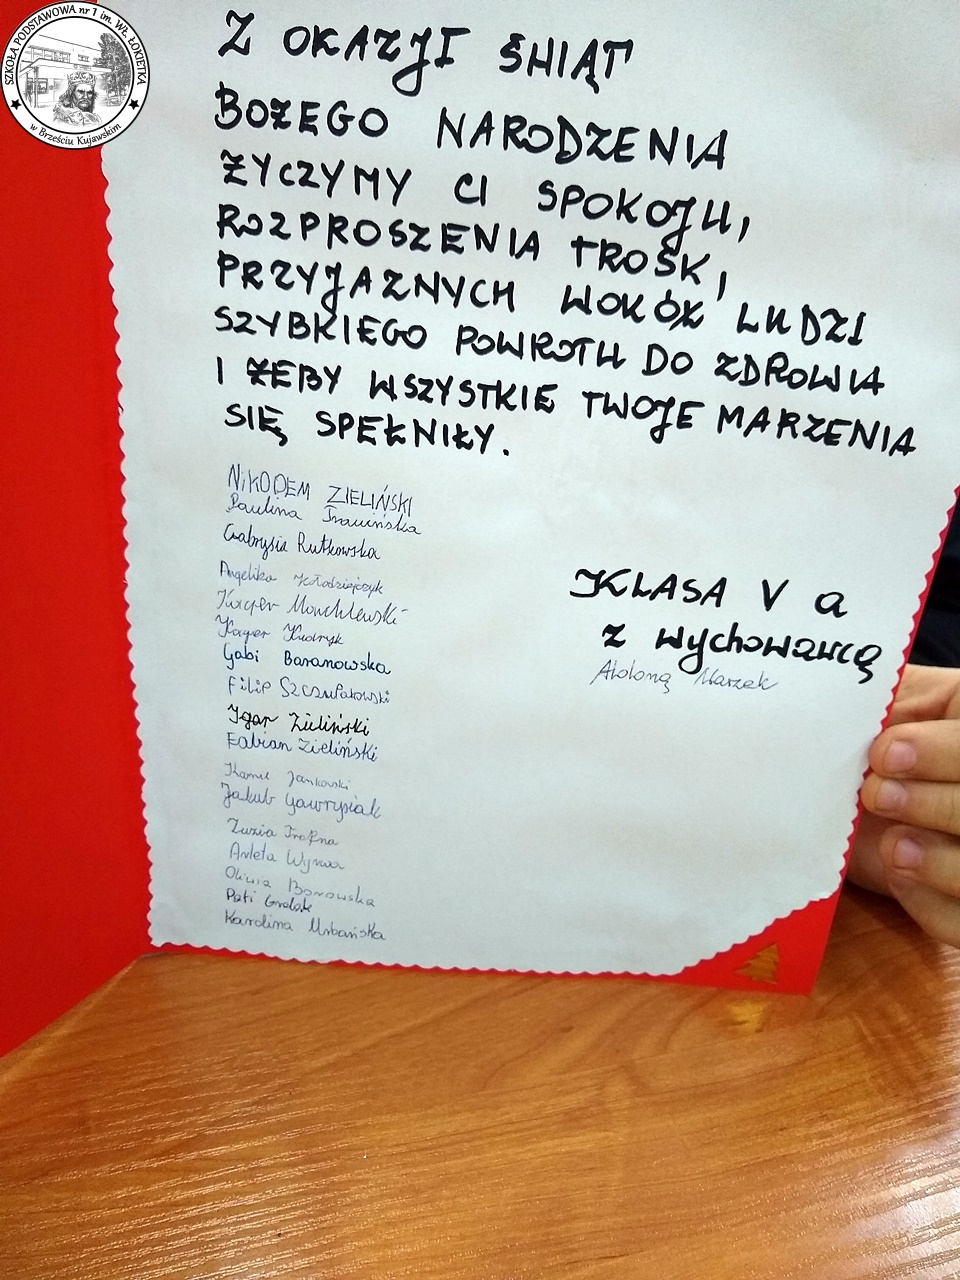 SZKOŁA PODSTAWOWA nr 1 im. WŁ. ŁOKIETKA
w Brześciu Kujawskim
Z OKAZJI ŚWIĄT
BOŻEGO NARODZENIA
ŻYCZYMY CI SPOKOJU,
ROZPROSZENIA TROSK,
PRZYJAZNYCH WOKÓŁ LUDZI
SZYBKIEGO POWROTU DO ZDROWIA
I ŻEBY WSZYSTKIE TWOJE MARZENIA
SIĘ SPEŁNIŁY.
NIKODEM ZIELIŃSKI
Paulina
Gabrysia Rutkowska
Angelika Kołodziejczyk
Kacper
Kacper Kudryk
Gabi Baranowska
Filip
Igor Zieliński
Fabian Zieliński
Kamil Jankowski
Jakub Gawrysiak
Zuzia
Arleta
Oliwia Borowska
Pati
Karolina Urbańska
KLASA V a
z wychowawcą
Marzek